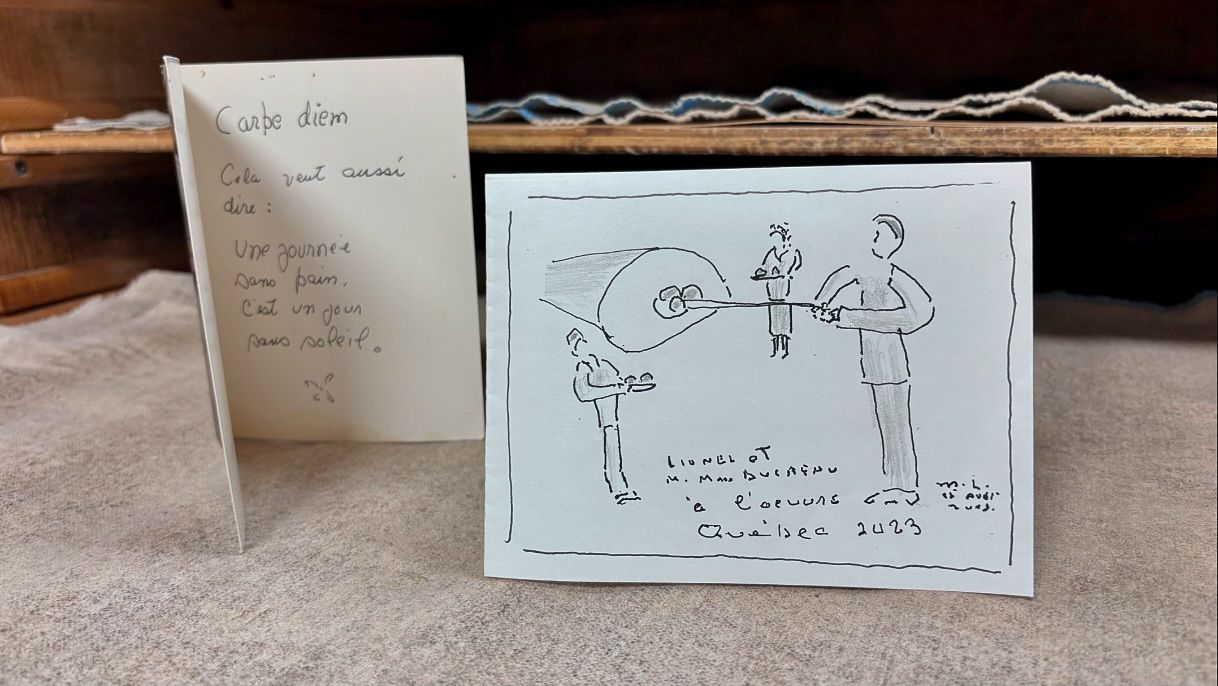 Carpe diem
Cela veut aussi
dire :
Une journée
sans pain,
c'est un jour
sans soleil.
LIONEL et
M. Mme
à l'oeuvre
Québec 2023
M. L.
15 AOUT